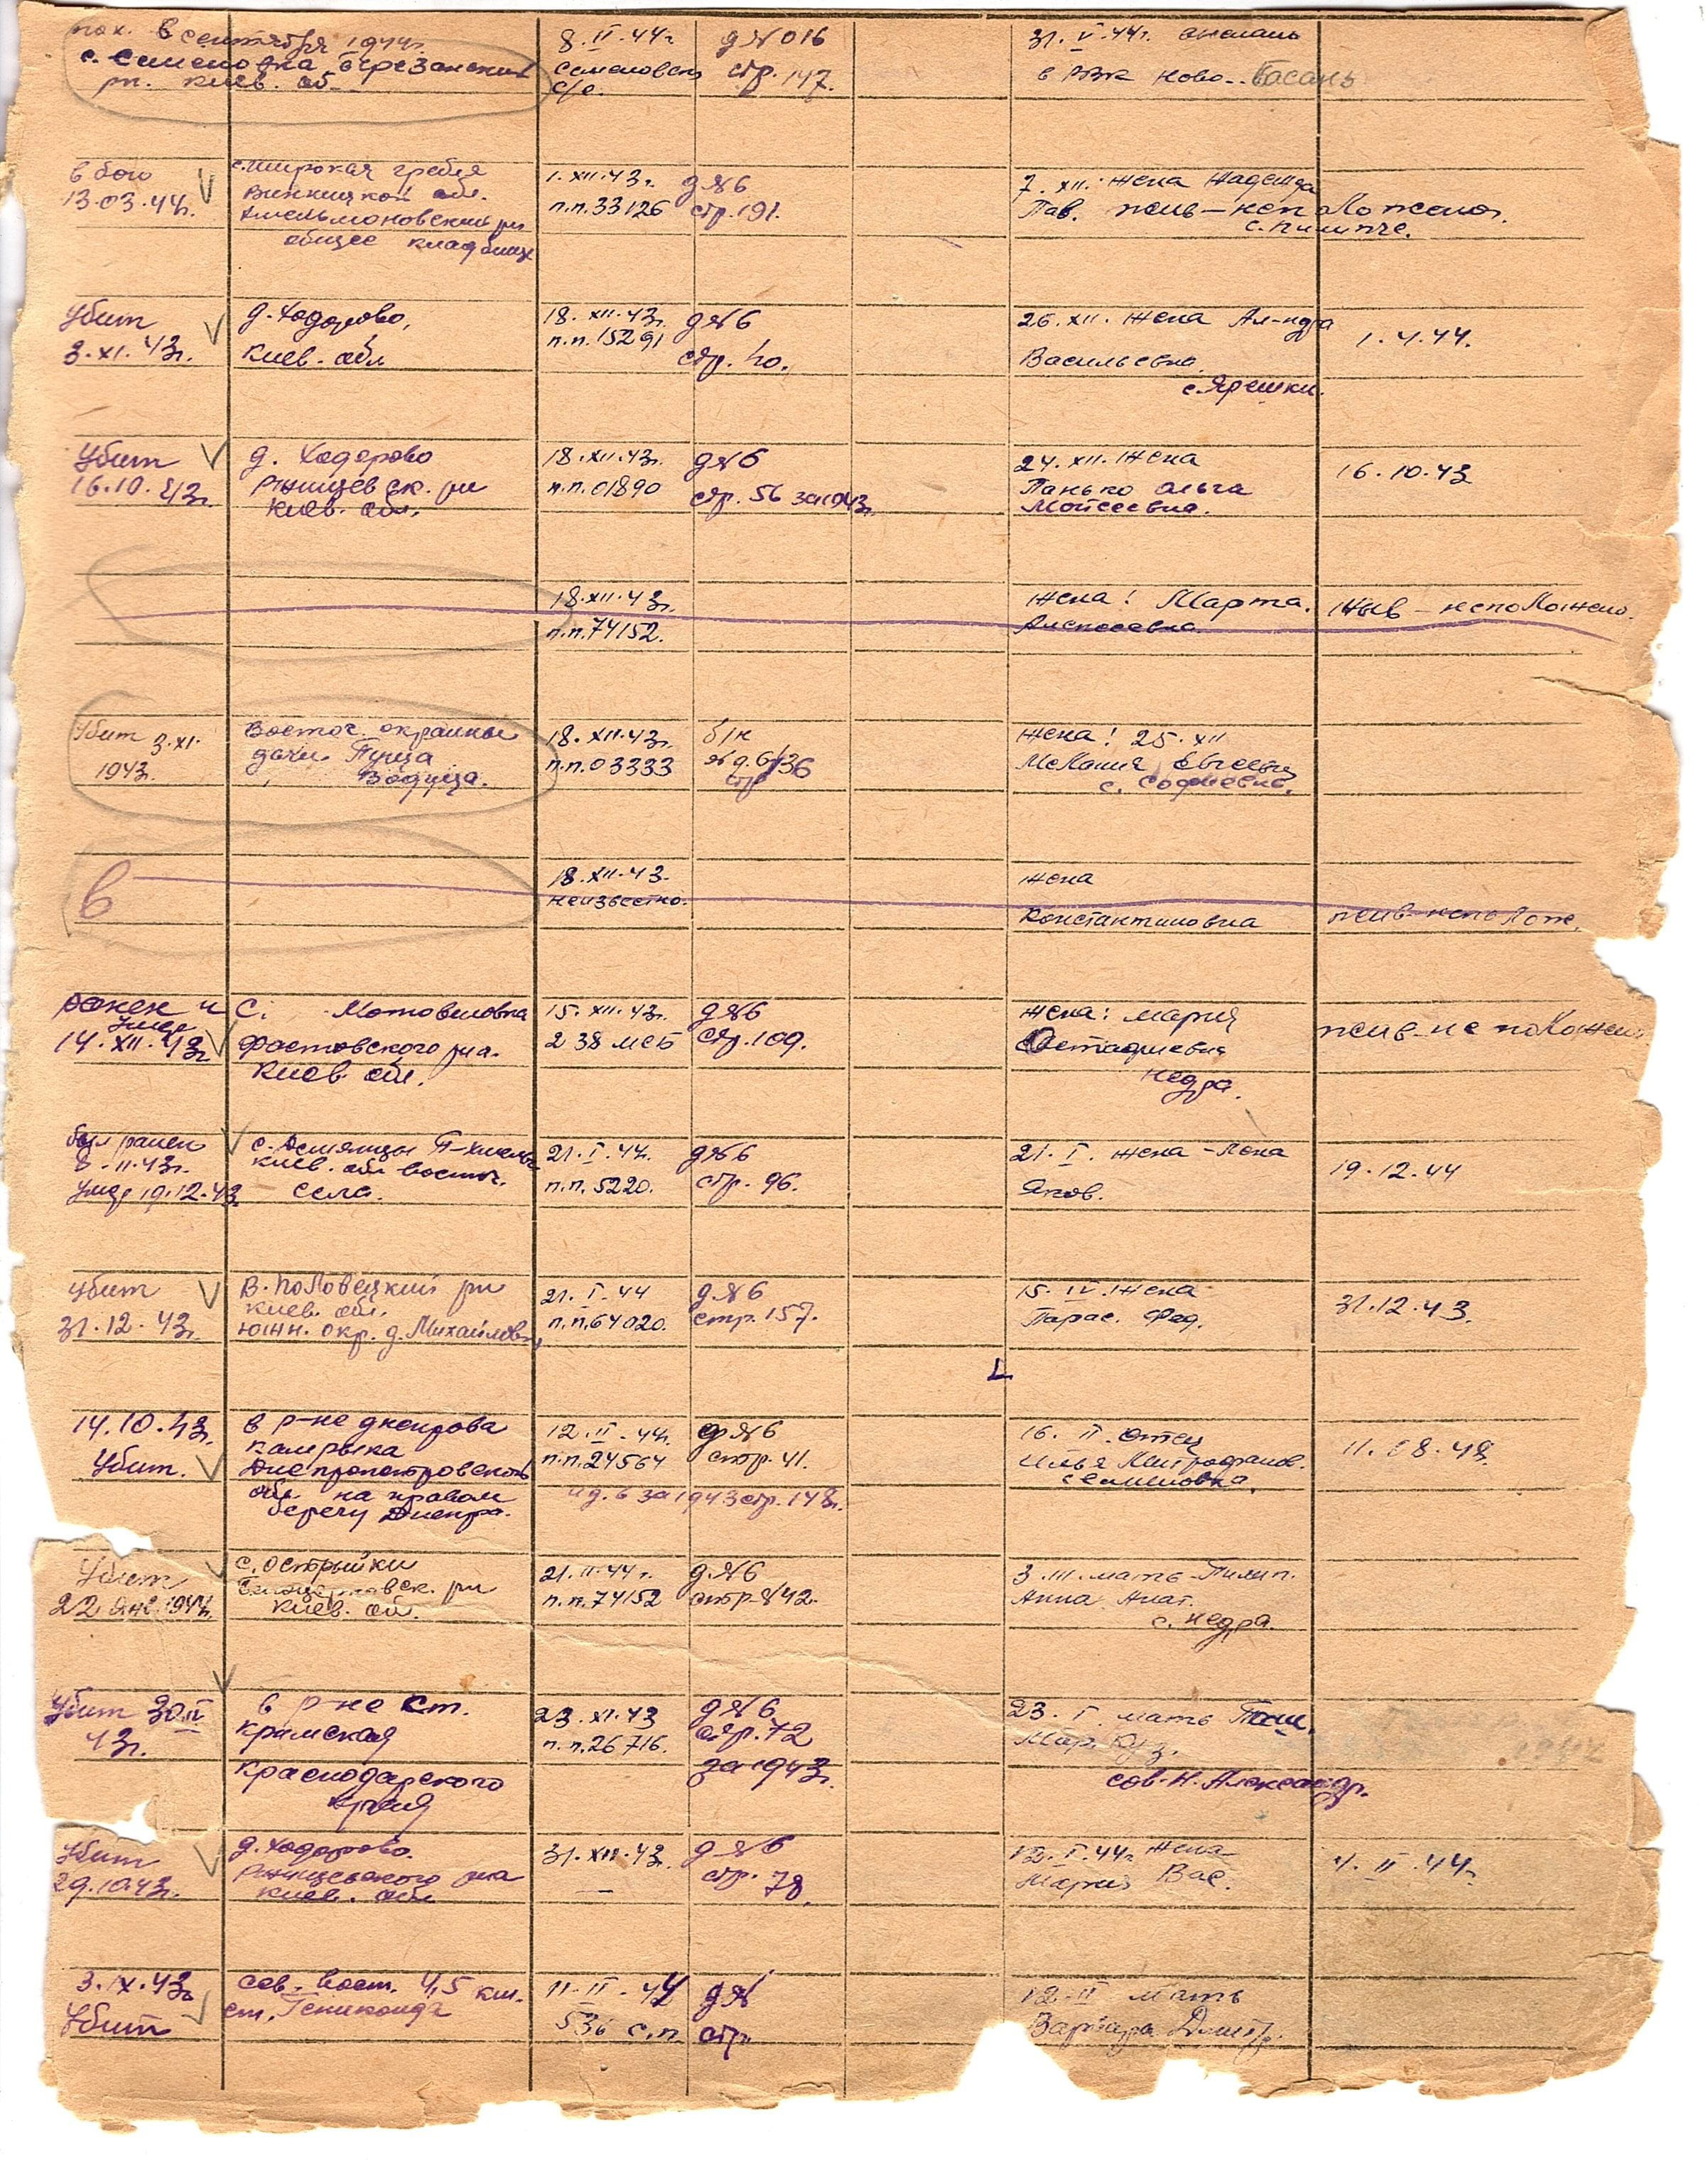 пох. в сентября 1944г.
с. Семеновка Березанский
рн. Киев. об.
8.II.44г
Семеновский
с/с.
д№016
стр. 147.
31.V.44г. выслано
в РВК Ново-Басань
в бою
13.03.44г.
с. Широкая гребля
Винницкой обл.
Хмельмановский рн
общее кладбище
1.XII.43г.
п.п.33126
д№6
стр.191.
7.XII. жена Надежда
Пав. пенс-неположено.
с. Пилипче.
Убит
3.XI.43г.
д. Ходорово,
Киев. обл
18.XII.43г.
п.п.15291
д№6
стр. 40.
26.XII. жена Ал-ндра
Васильевна.
с. Ярешки.
1.4.44.
Убит
16.10.43г.
д. Ходорово
Ржищевск. рн
Киев. обл.
18.XII.43г.
п.п.01890
д№6
стр. 56 за 1943г.
24.XII. жена
Панько Ольга
Мойсеевна.
16.10.43
18.XII.43г.
п.п.74152.
жена: Марта.
Алексеевна.
неположено.
Убит 3.XI.
1943г.
Восточ. окраины
дачи Пуща
Водица.
18.XII.43г.
п.п.03333
б/н
№д.6/36
стр
жена: 25.XII
Мелания
с. Софиевка.
В
18.XII.43.
неизвестно.
жена
Константиновна
пенс-неполож.
ранен и
умер
14.XII.43г
С. Мотовиловка
Фастовского р-на.
Киев. обл.
15.XII.43г.
238 МСБ
д№6
стр.109.
жена: Мария
Остафиевна
Недра.
пенс-не положено
был ранен
8-11.43г.
умер 19.12.43
с.
Киев. обл восточ.
села.
21.I.44г.
п.п.5220.
д№6
стр. 96.
21.I. жена
Яков.
19.12.44
Убит
31.12.43г.
В. Половецкий рн
Киев. обл.
южн. окр. д. Михайловка,
21.I.44
п.п.64020.
д.№6
стр.157.
15.IV. жена
Парас. Фед.
31.12.43.
14.10.43г.
Убит.
в р-не днепрова
Днепропетровской
обл. на правом
берегу Днепра.
12.II.44г.
п.п.24564
д№6
стр.41.
и д.6 за 1943 стр.148.
16.II. отец
Илья Митрофанов.
Семеновка.
11.08.48.
Убит
22 янв 1944г.
с. Острыйки
Белоцерковск. рн
Киев. об.
21.II.44г.
п.п.74152
д.№6
стр 8/42.
3.III. мать-Пилип.
Анна Анат.
с. Недра.
Убит 30
43г.
в р-не ст.
крымская
Краснодарского
края
23.XI.43
п.п.26716.
д№6
стр.72
за 1943г.
23.I. мать
Мар. Куз.
сов. Н. Александр.
Убит
29.10.43г.
д. Ходорово.
Ржищевского р-на
Киев. обл
31.XII.43.
—
д№6
стр. 78
12.I.44г жена
Мария Вас.
4.II.44г.
3.IX.43г
Убит
сев-вост. 4,5 км.
ст.
11-II-44
536 с.п.
д№
стр.
12-II мать
Варвара Дмитр.